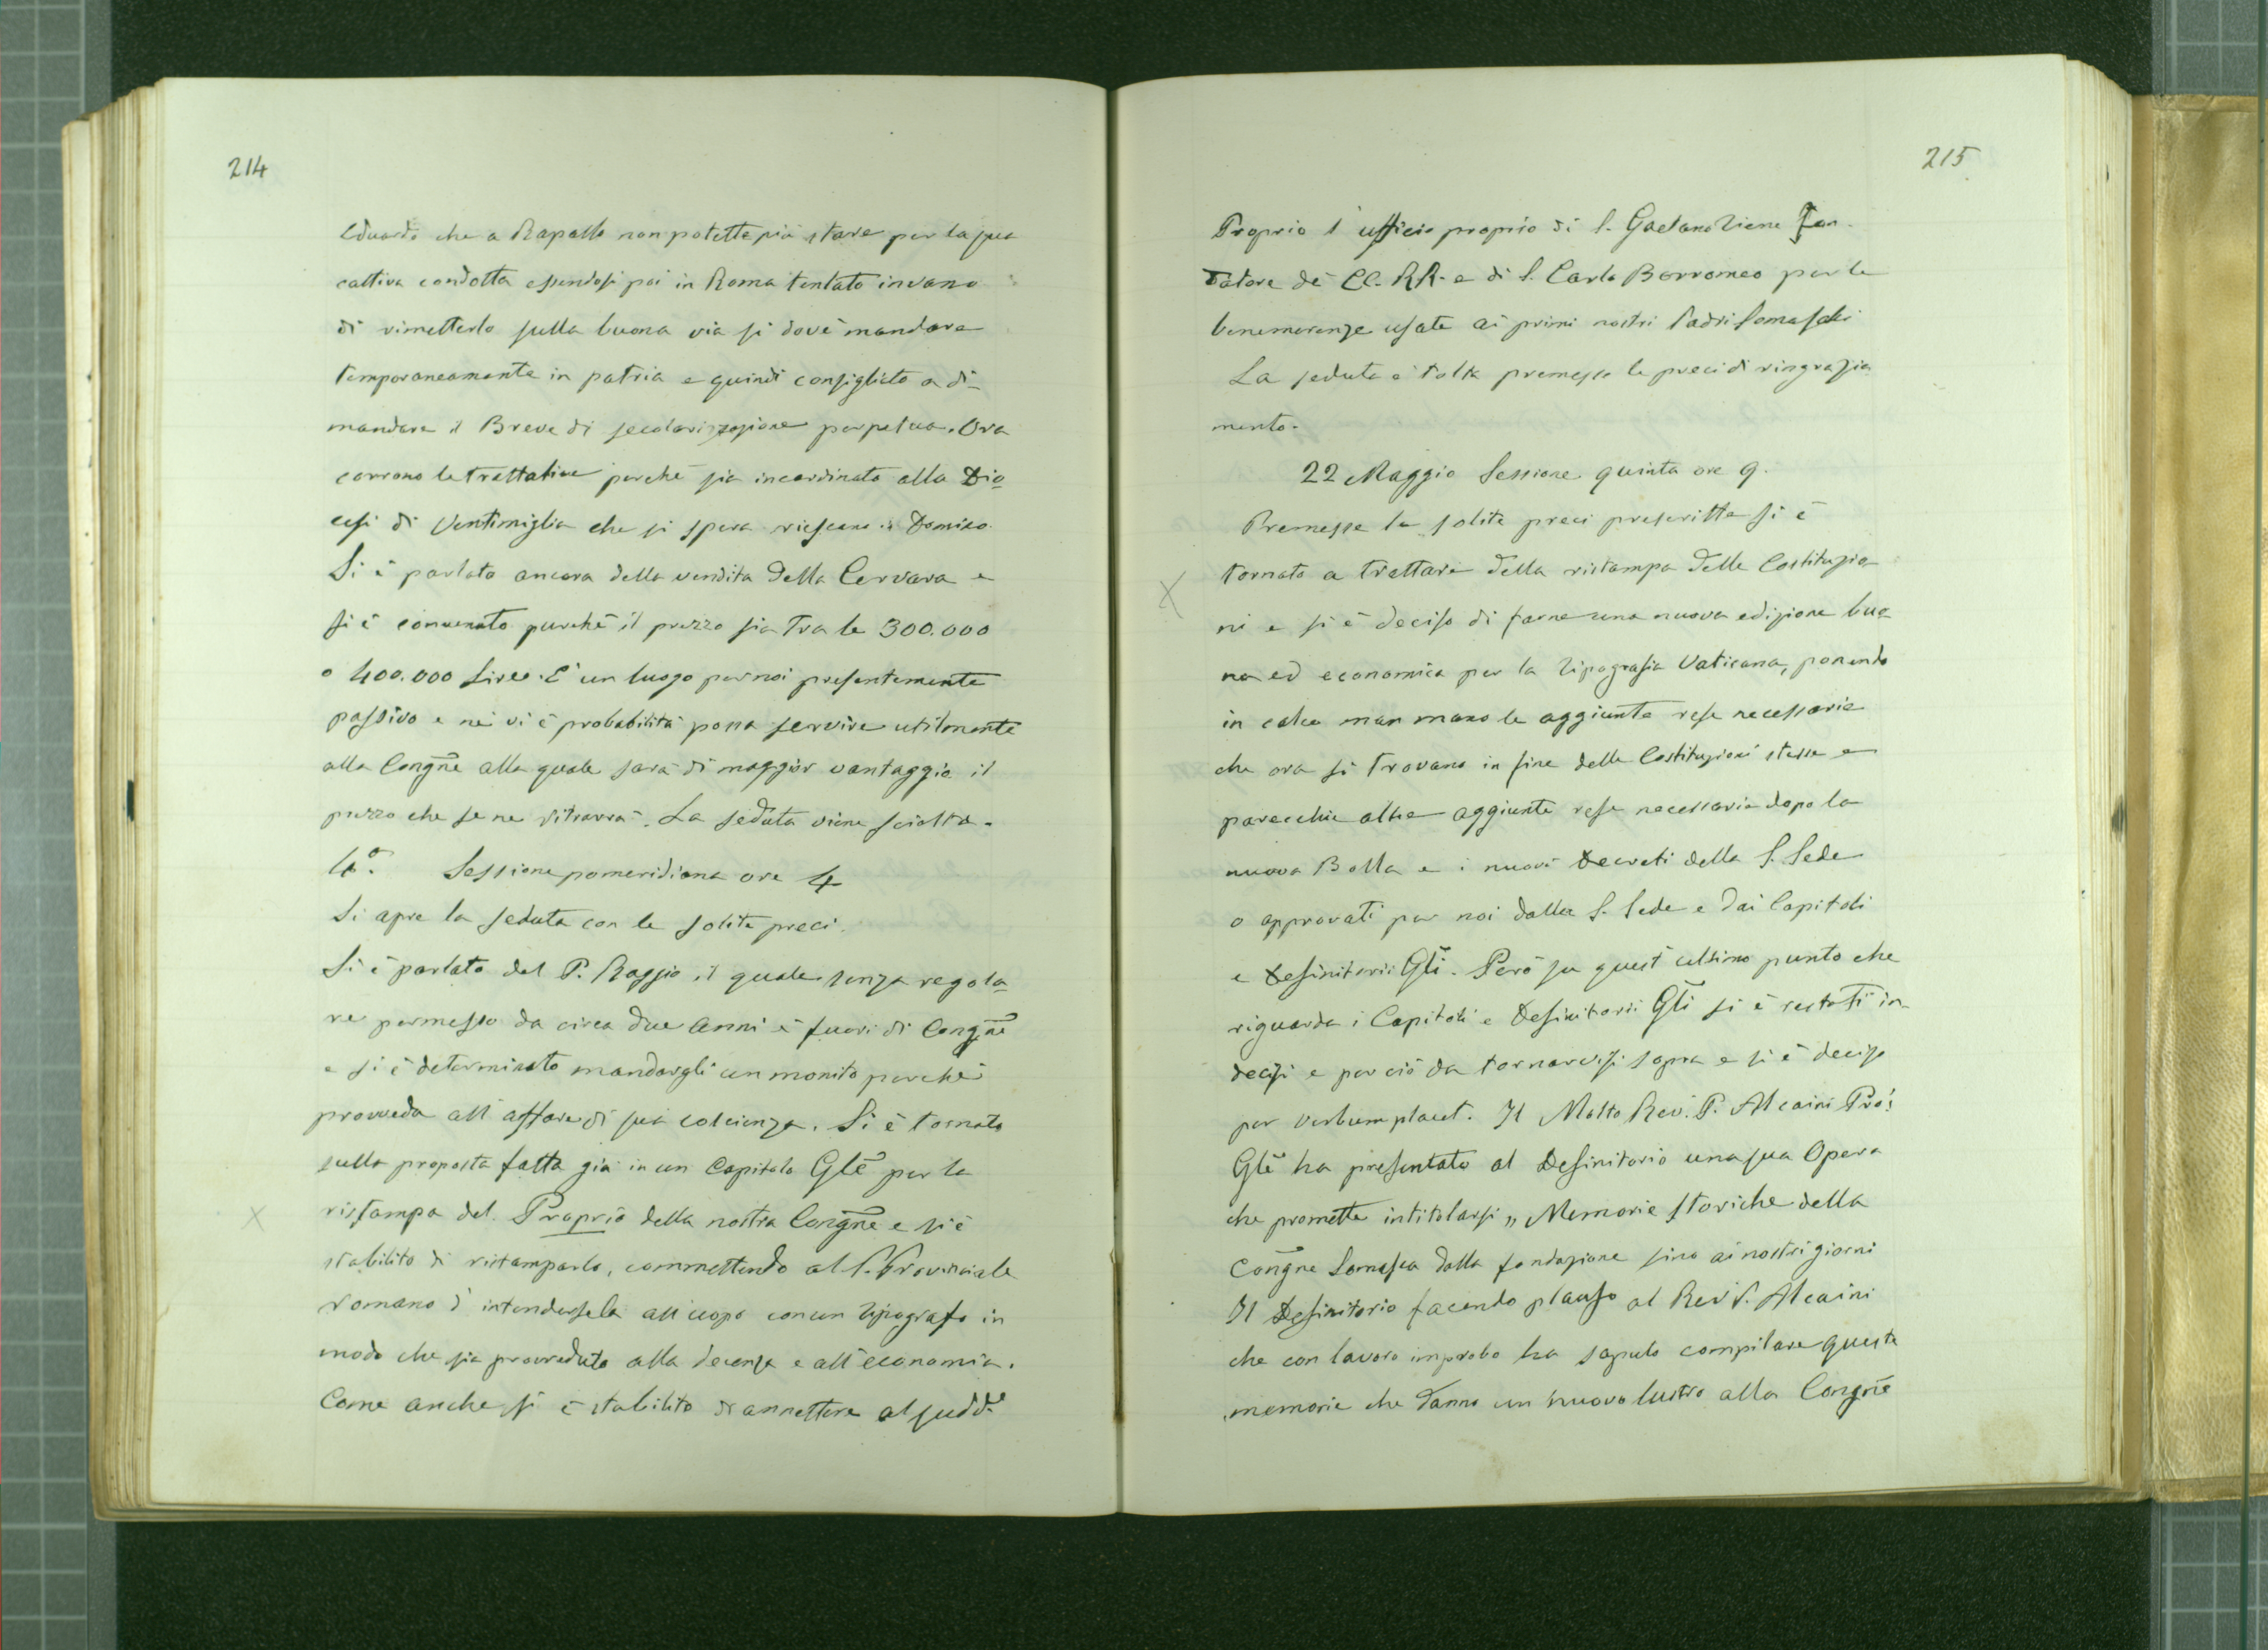 214
Eduardo che a Rapallo non potette più stare per la sua
cattiva condotta essendosi poi in Roma tentato invano
di rimetterlo sulla buona via si dové mandare
temporaneamente in patria e quindi consigliato a di-
mandare il Breve di secolarizzazione perpetua. Ora
corrono le trattative perché sia incardinato alla Dio-
cesi di Ventimiglia che si spera riescano in Domino.
Si è parlato ancora della vendita della Cervara e
si è convenuto purché il prezzo sia tra le 300.000
o 400.000 Lire. È un luogo per noi presentemente
passivo e né vi è probabilità possa servire utilmente
alla Congñe alla quale sarà di maggior vantaggio il
prezzo che se ne ritrarrà. La seduta viene sciolta.
4ª. Sessione pomeridiana ore 4
Si apre la seduta con le solite preci.
Si è parlato del P. Raggio il quale senza regola-
re permesso da circa due anni è fuori di Congñe
e si è determinato mandargli un monito perché
provveda all'affare di sua coscienza. Si è tornato
sulla proposta fatta già in un Capitolo Glẽ per la
ristampa del Proprio della nostra Congñe e si è
stabilito di ristamparlo, commettendo al P. Provinciale
romano d'intendersela all'uopo con un tipografo in
modo che sia provveduto alla decenza e all'economia.
Come anche si è stabilito di annettere al sudd.º
215
Proprio l'ufficio proprio di S. Gaetano Tiene Fon-
datore de' CC. RR. e di S. Carlo Borromeo per le
benemerenze usate ai primi nostri Padri Somaschi
La seduta è tolta premesse le preci di ringrazia
mento.
22 Maggio Sessione quinta ore 9.
Premesse le solite preci prescritte si è
tornato a trattare della ristampa delle Costituzio-
ni e si è deciso di farne una nuova edizione buo-
na ed economica per la Tipografia Vaticana, ponendo
in calce man mano le aggiunte rese necessarie
che ora si trovano in fine delle Costituzioni stesse e
parecchie altre aggiunte rese necessarie dopo la
nuova Bolla e i nuovi Decreti della S. Sede
o approvati per noi dalla S. Sede e dai Capitoli
e Definitorii Glĩ. Però su quest'ultimo punto che
riguarda i Capitoli e Definitorii Glĩ si è restati in-
decisi e perciò da tornarvisi sopra e si è deciso
per verbum placet. Il Molto Rev. P. Alcaini Prõ:
Glẽ ha presentato al Definitorio una sua Opera
che promette intitolarsi „ Memorie storiche della
Congñe Somasca dalla fondazione sino ai nostri giorni
Il Definitorio facendo plauso al Rev. P. Alcaini
che con lavoro improbo ha saputo compilare queste
memorie che danno un nuovo lustro alla Congñe